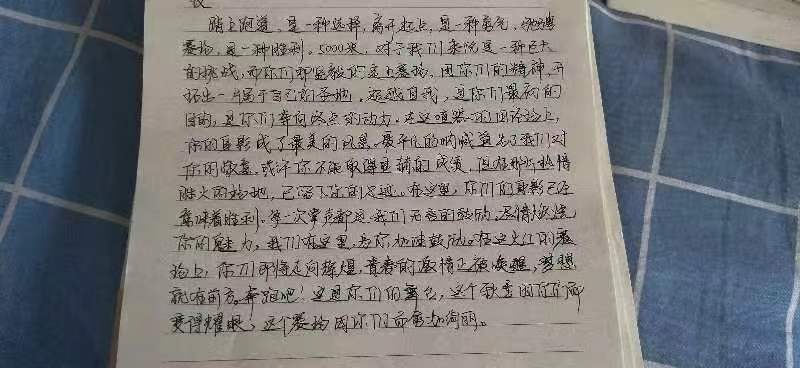 踏上跑道，是一种选择，离开起点，是一种勇气，驰骋
赛场，是一种胜利。5000米，对于我们来说是一种巨大
的挑战，而你们却坚毅的走上赛场，用你们的精神，开
拓出一片属于自己的天地。超越自我，是你们最初的
目的，是你们奔向终点的动力。在这喧嚣的田径场上，
你的身影成了最美的风景。震耳的呐喊道出了我们对
你的敬意，或许你不能取得辉煌的成绩，但在那片热情
胜火的场地，已留下你的足迹。在这里，你们的身影已经
意味着胜利。每一次掌声都是我们无言的鼓励，尽情绽放
你的魅力，我们在这里，为你加油鼓励。在这火红的赛
场上，你们即将走向辉煌，青春的激情正被唤醒，梦想
就在前方。奔跑吧！这是你们的舞台，这个秋季因你们而
变得耀眼，这个赛场因你们而更加绚丽。